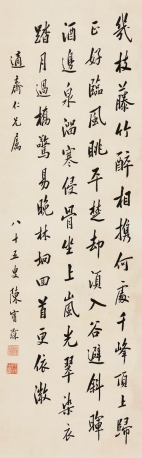 幾枝藤竹醉相攜何處千峰頂上歸
正好臨風眺平楚却須入谷避斜暉
酒邊泉溜寒侵骨坐上嵐光翠染衣
踏月過橋驚易晚林坰回首更依微
適齋仁兄屬
八十五叟陳寶琛